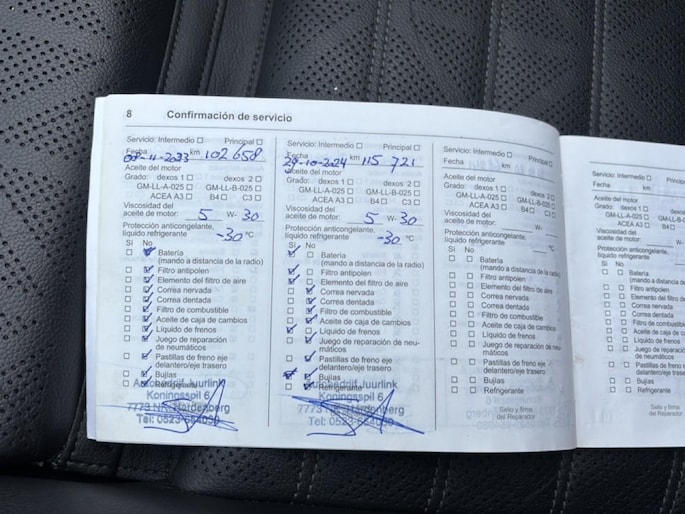 8 Confirmación de servicio
Servicio: Intermedio Principal
Fecha 08-11-2023 km 102 658
Aceite del motor
Grado: dexos 1 dexos 2
GM-LL-A-025 GM-LL-B-025
ACEA A3 B4 C3
Viscosidad del
aceite de motor: 5 W- 30
Protección anticongelante,
líquido refrigerante -30 °C
Sí No
Batería
(mando a distancia de la radio)
Filtro antipolen
Elemento del filtro de aire
Correa nervada
Correa dentada
Filtro de combustible
Aceite de caja de cambios
Líquido de frenos
Juego de reparación
de neumáticos
Pastillas de freno eje
delantero/eje trasero
Bujías
Refrigerante
Autobedrijf Juurlink
Koningsspil 6
7773 NK Hardenberg
Tel: 0523-
Servicio: Intermedio Principal
Fecha 29-10-2024 km 115 721
Aceite del motor
Grado: dexos 1 dexos 2
GM-LL-A-025 GM-LL-B-025
ACEA A3 B4 C3
Viscosidad del
aceite de motor: 5 W- 30
Protección anticongelante,
líquido refrigerante -30 °C
Sí No
Batería
(mando a distancia de la radio)
Filtro antipolen
Elemento del filtro de aire
Correa nervada
Correa dentada
Filtro de combustible
Aceite de caja de cambios
Líquido de frenos
Juego de reparación de neu-
máticos
Pastillas de freno eje
delantero/eje trasero
Bujías
Refrigerante
Autobedrijf Juurlink
Koningsspil 6
7773 NK Hardenberg
Tel: 0523-
Servicio: Intermedio Principal
Fecha km
Aceite del motor
Grado: dexos 1 dexos 2
GM-LL-A-025 GM-LL-B-025
ACEA A3 B4 C3
Viscosidad del
aceite de motor: W-
Protección anticongelante,
líquido refrigerante °C
Sí No
Batería
(mando a distancia de la radio)
Filtro antipolen
Elemento del filtro de aire
Correa nervada
Correa dentada
Filtro de combustible
Aceite de caja de cambios
Líquido de frenos
Juego de reparación de neu-
máticos
Pastillas de freno eje
delantero/eje trasero
Bujías
Refrigerante
Sello y firma
del Reparador
Servicio: Intermedio Principal
Fecha km
Aceite del motor
Grado: dexos 1 dexos 2
GM-LL-A-025 GM-LL-B-025
ACEA A3 B4 C3
Viscosidad del
aceite de motor: W-
Protección anticongelante,
líquido refrigerante
Sí No
Batería
(mando a distancia de la radio)
Filtro antipolen
Elemento del filtro de aire
Correa nervada
Correa dentada
Filtro de combustible
Aceite de caja de cambios
Líquido de frenos
Juego de reparación
de neumáticos
Pastillas de freno eje
delantero/eje trasero
Bujías
Refrigerante
Sello y firma
del Reparador